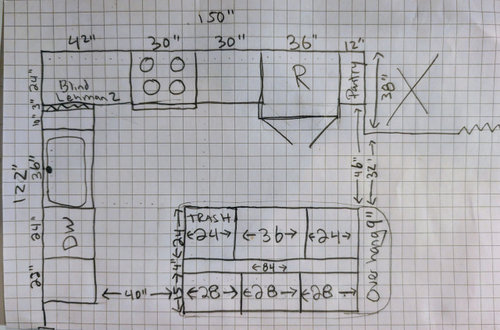 150"
42"
30"
30"
36"
12"
24"
Blind
Lehman 2
3"
R
Pantry
38"
122"
36"
46"
32"
24"
DW
TRASH
24
36
24
24
4"
84
15
28
28
28
Overhang 9"
40"
22"